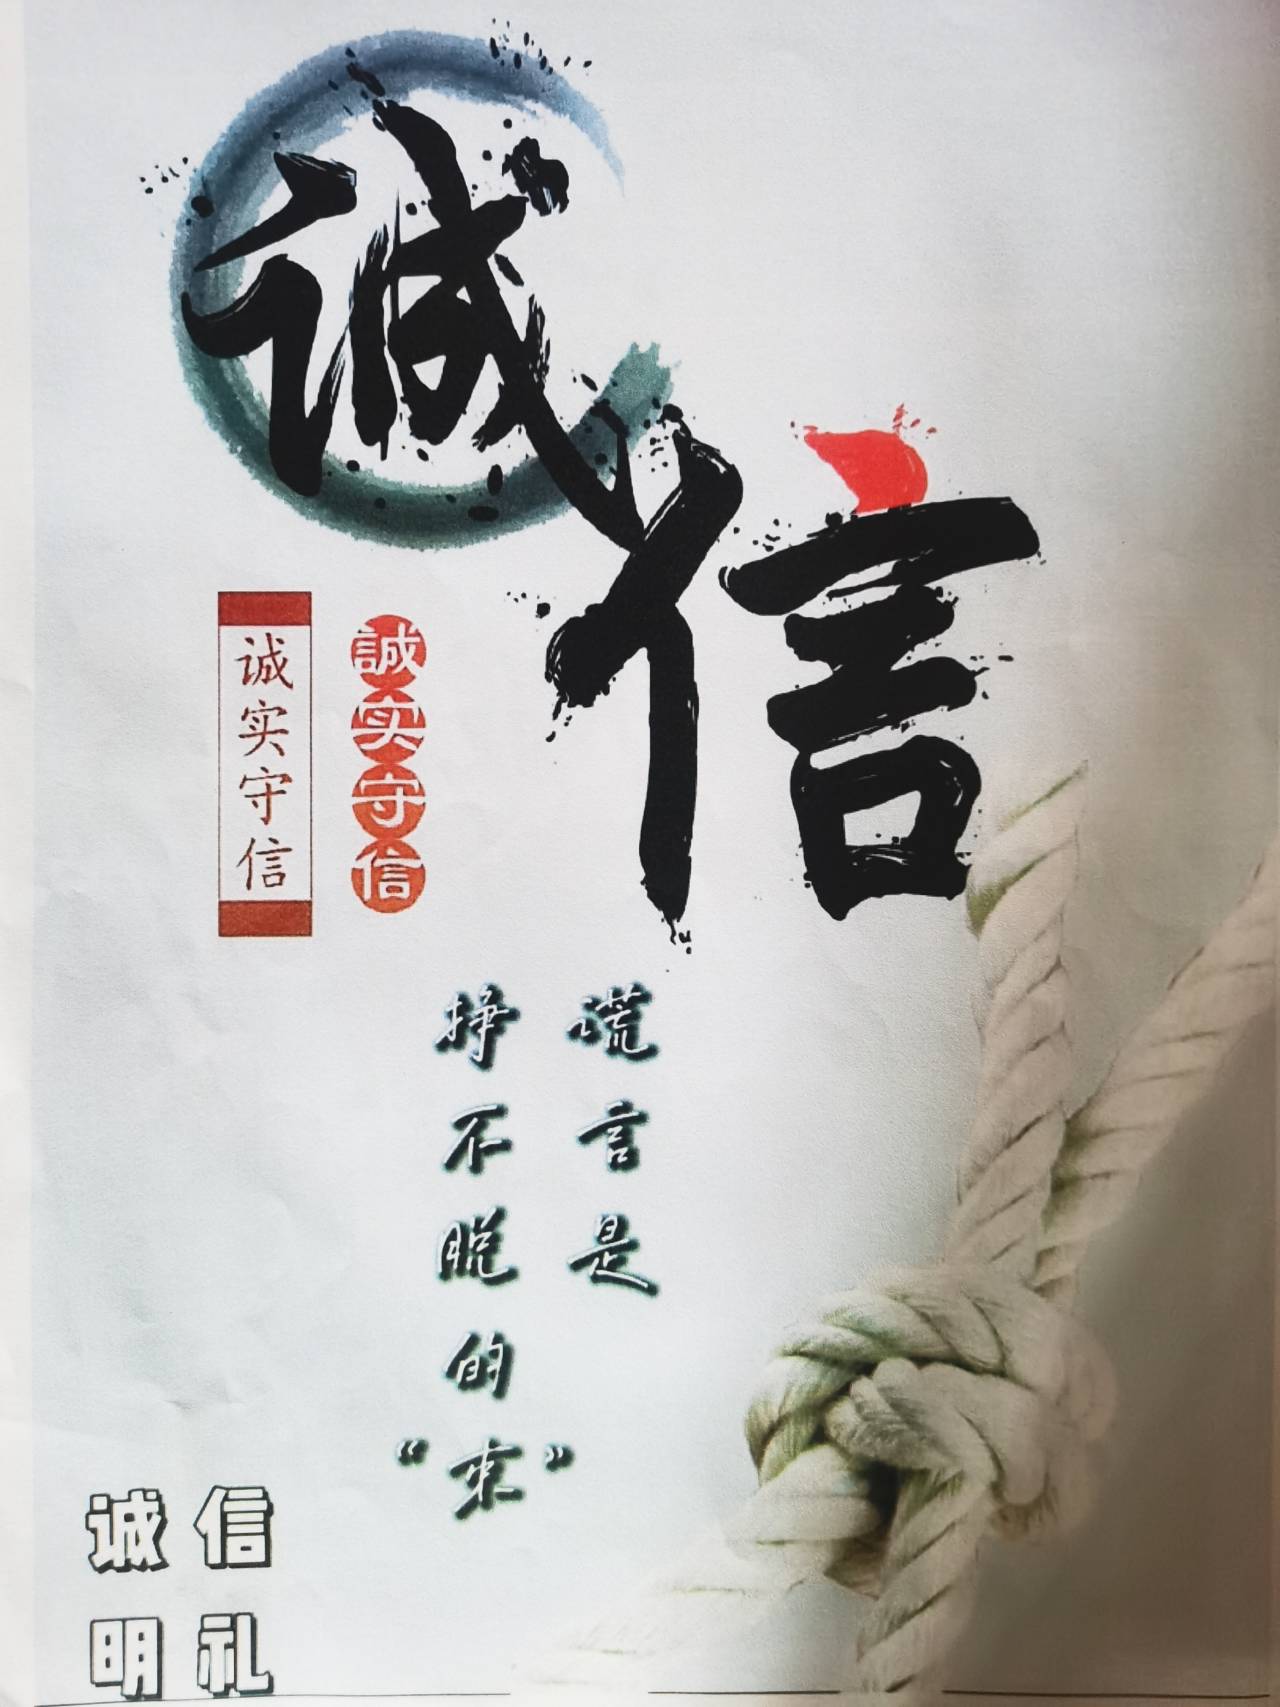 诚信
诚实守信
誠实守信
谎言是
挣不脱的
“束”
诚信
明礼